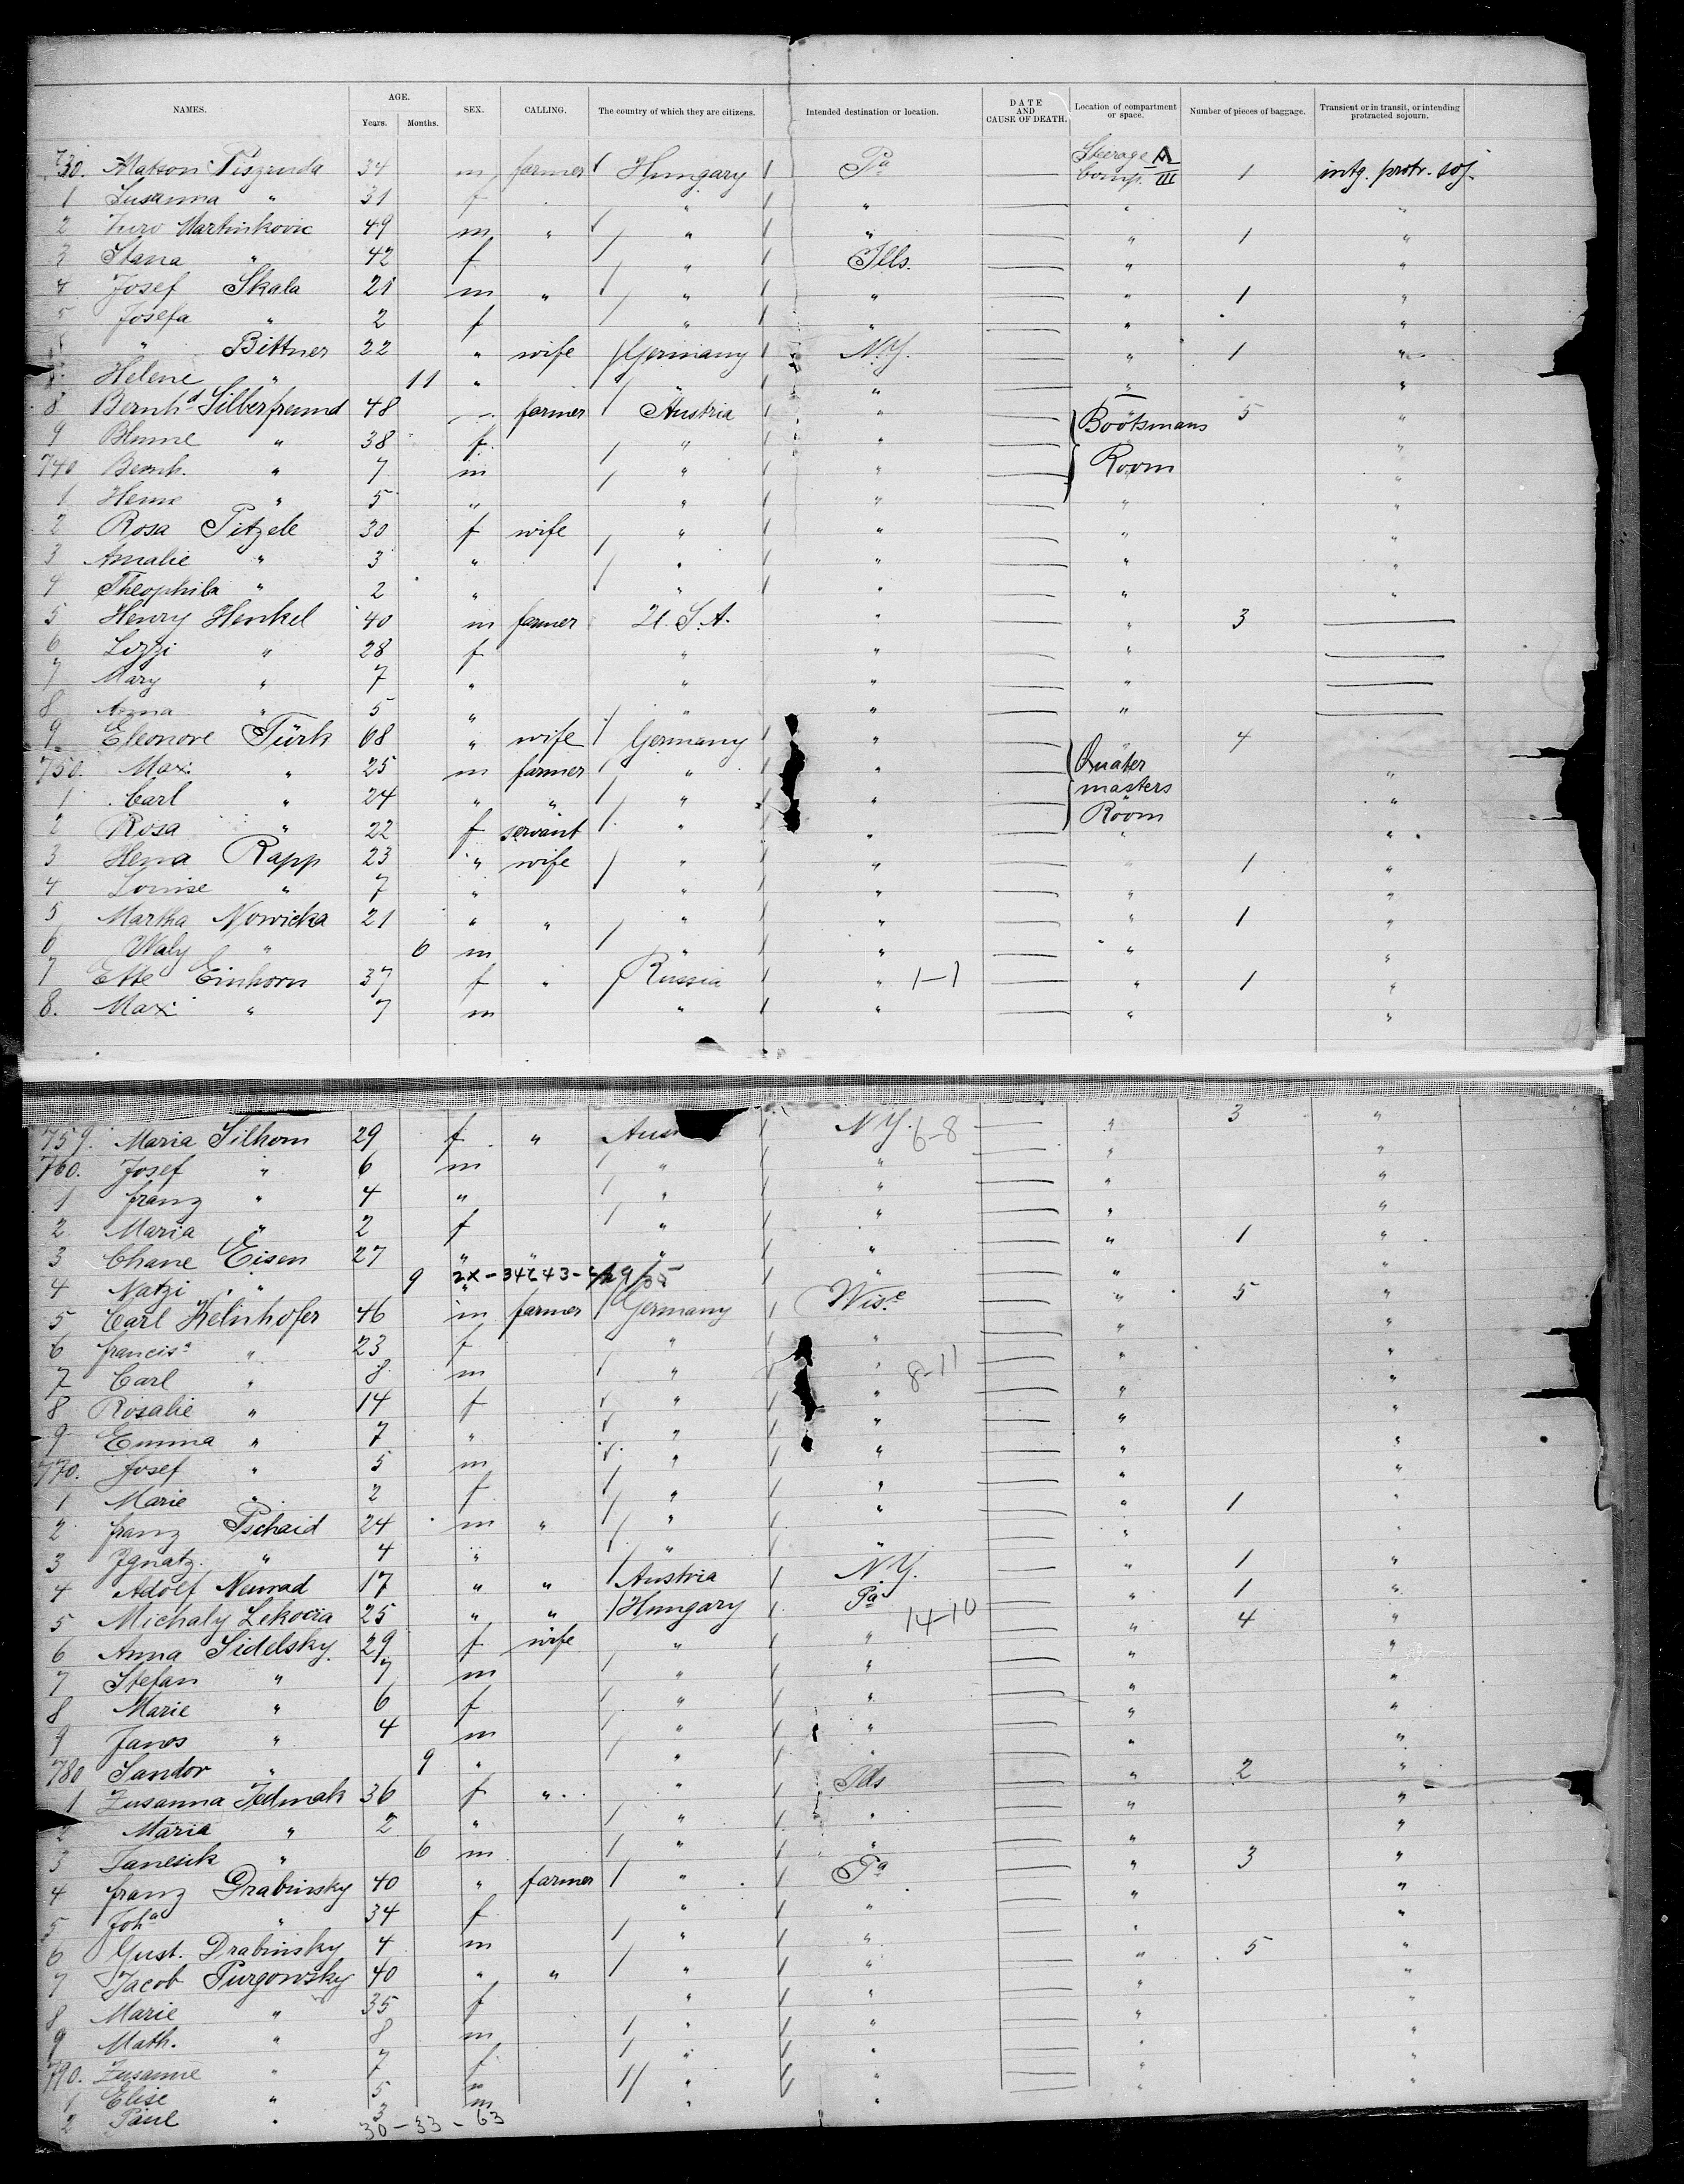 NAMES. AGE. Years. Months. SEX. CALLING. The country of which they are citizens. Intended destination or location. DATE AND CAUSE OF DEATH. Location of compartment or space. Number of pieces of baggage. Transient or in transit, or intending protracted sojourn.
730. Matson 34 m farmer Hungary Pa Steerage Comp. III 1 intg. protr. soj.
1 Susanna " 31 f " " " "
2 Juro Martinkovic 49 m " " " " 1 "
3 Stana " 42 f " Ills. " "
4 Josef Skala 21 m " " " " 1 "
5 Josefa " 2 f " " " "
" Bittner 22 " wife Germany N.Y. " 1 "
Helene " 11 " " " " "
8 Bernhd Silberfreund 48 farmer Austria " Bootsmans 5 "
9 Blume " 38 f " " "
740 Bernh. " 7 m " " Room "
1 " 5 " " " " "
2 Rosa Pitzele 30 f wife " " " "
3 Amalie " 3 " " " " "
4 Theophila " 2 " " " " "
5 Henry Henkel 40 m farmer U.S.A. " " 3
6 Lizzi " 28 f " " "
7 Mary " 7 " " " "
8 Anna " 5 " " " "
9 Eleonore Türk 68 " wife Germany " 4
750. Max " 25 m farmer " " Quater "
1 Carl " 24 " " " " masters "
2 Rosa " 22 f servant " " Room "
3 Hena Rapp 23 " wife " " " 1 "
4 Louise " 7 " " " " "
5 Martha Nowicka 21 " " " " " 1 "
6 Waly " 6 m " " " "
7 Ette Einhorn 37 f " Russia " 1-1 " 1 "
8. Max " 7 m " " " "
759. Maria Silhorn 29 f " Aus N.Y. 6-8 " 3 "
760. Josef " 6 m " " " "
1 Franz " 4 " " " " "
2 Maria " 2 f " " " "
3 Chane Eisen 27 " " " " " 1 "
4 Natzi " 9 " 2x-34243- " " "
5 Carl Helnhofer 46 m farmer Germany Wisc " 5 "
6 Francisa " 23 f " " " "
7 Carl " 8 m " " 8-11 " "
8 Rosalie " 14 f " " " "
9 Emma " 7 " " " " "
770. Josef " 5 m " " " "
1 Marie " 2 f " " " "
2 Franz Pschaid 24 m " " " " 1 "
3 Ignatz " 4 " " " " "
4 Adolf Neurad 17 " " Austria N.Y. " 1 "
5 Michaly Lekocia 25 " " Hungary Pa " 1 "
6 Anna Sidelsky 29 f wife " " 14-10 " 4 "
7 Stefan " 7 m " " " "
8 Marie " 6 f " " " "
9 Janos " 4 m " " " "
780 Sandor " 9 " " " " "
1 Zusanna Jedmak 36 f " " " 2 "
2 Maria " 2 " " " " "
3 Janesik " 6 m " " " "
4 Franz Drabinsky 40 " farmer " Pa " 3 "
5 Joha " 34 f " " " "
6 Gust. Drabinsky 4 m " " " "
7 Jacob Purgowsky 40 " " " " " 5 "
8 Marie " 35 f " " " "
9 Math. " 8 m " " " "
790. Zusanne " 7 f " " " "
1 Elise " 5 " " " "
2 Paul " 3 m " "
30-33-63